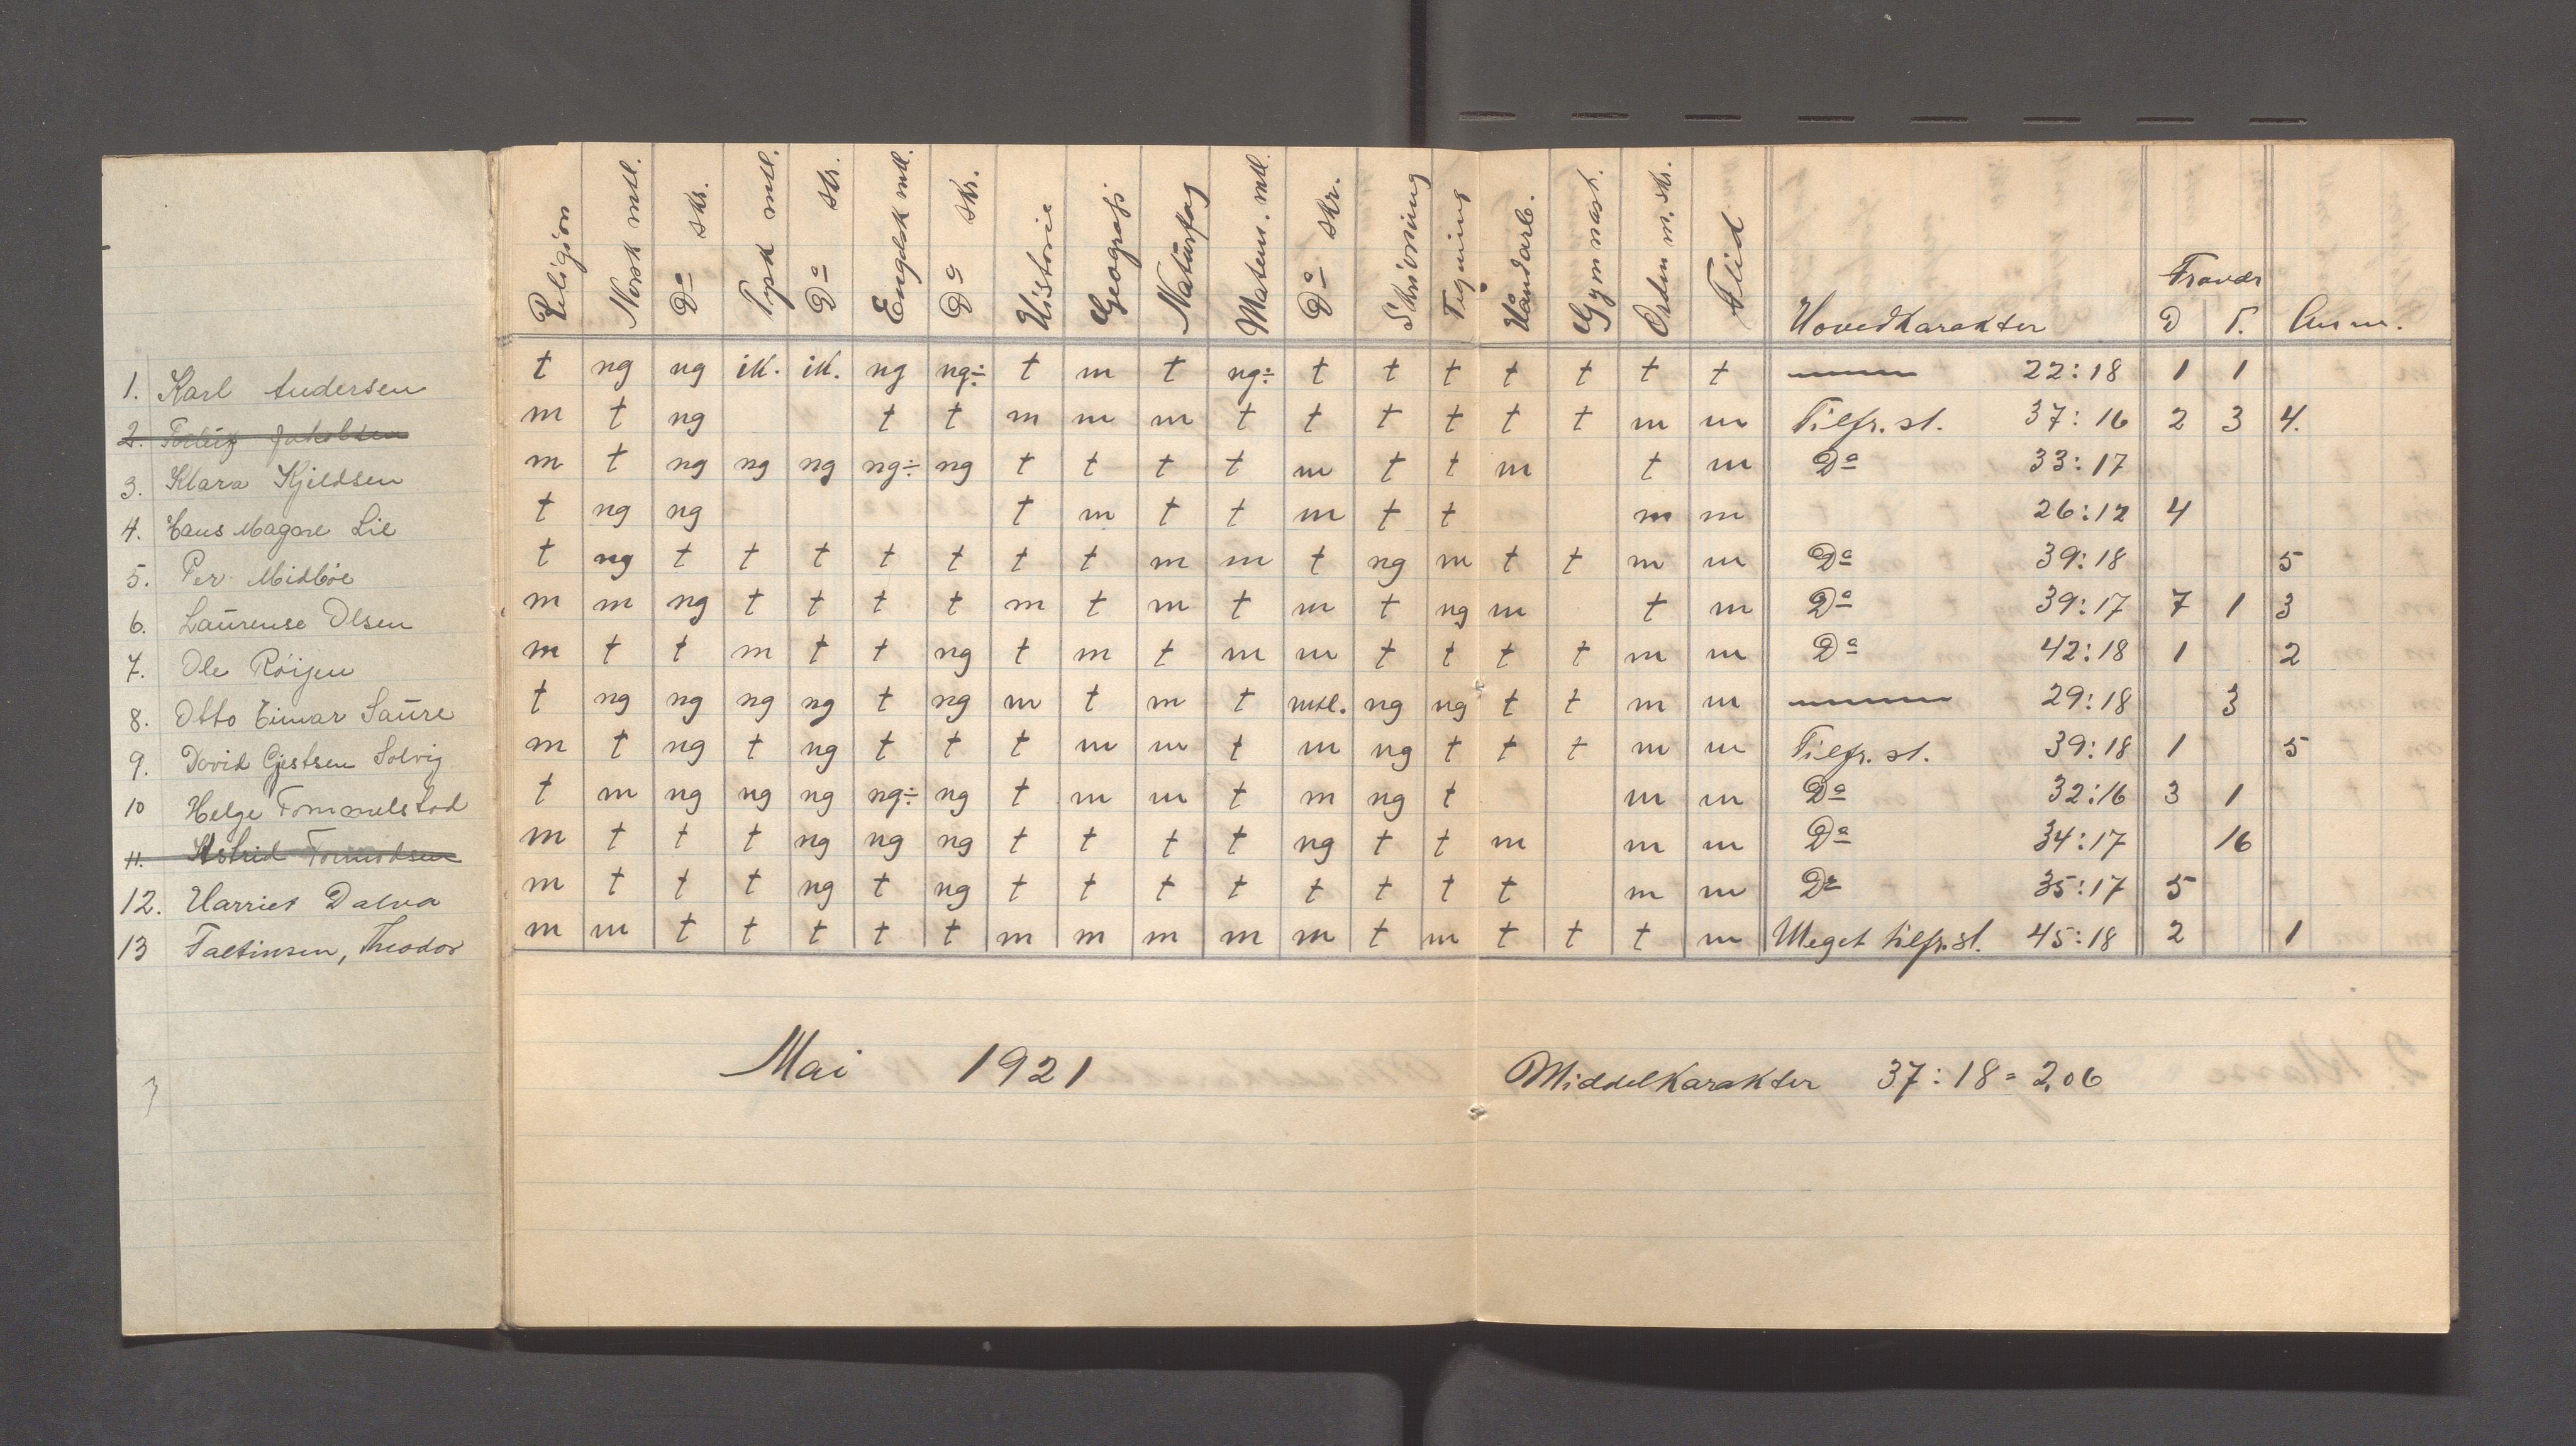 Religion Norsk mtl. Do skr. Tysk mtl. Do skr. Engelsk mtl. Do skr. Historie Geografi Naturfag Matem. mtl. Do skr. Skrivning Tegning Håndarb. Gymnast. Orden m. skr. Flid Hovedkarakter Fravær D T. Anm.
1. Karl Andersen t ng ng ik. ik. ng ng÷ t m t ng÷ t t t t t t t 22:18 1 1
2. Jakobsen m t ng t t m m m t t t t t t m m Tilfr.st. 37:16 2 3 4.
3. Klara Kjeldsen m t ng ng ng ng÷ ng t t t t m t t m t m Do 33:17
4. Hans Magare Lie t ng ng t m t t m t t m m 26:12 4
5. Per Midbøe t ng t t t t t t t m m t ng m t t m m Do 39:18 5
6. Laurense Olsen m m ng t t t t m t m t m t ng m t m Do 39:17 7 1 3
7. Ole Røijen m t t m t t ng t m t m m t t t t m m Do 42:18 1 2
8. Otto Einar Saure t ng ng ng ng t ng m t m t mtl. ng ng t t m m 29:18 3
9. David Gjestsen Solvig m t ng t ng t t t m m t m ng t t t m m Tilfr.st. 39:18 1 5
10 Helge Tommelstad t m ng ng ng ng÷ ng t m m t m ng t m m Do 32:16 3 1
11. Astrid Tormodsen m t t t ng ng ng t t t t ng t t m m m Do 34:17 16
12. Harriet Dalva m t t t ng t ng t t t t t t t t m m Do 35:17 5
13 Faltinsen, Theodor m m t t t t t m m m m m t m t t t m Meget tilfr.st. 45:18 2 1
Mai 1921
Middelkarakter 37:18 = 2,06